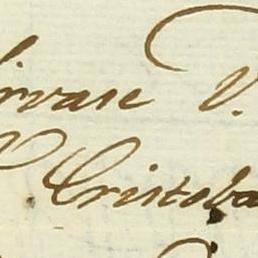 Sirvase V.
Cristoba